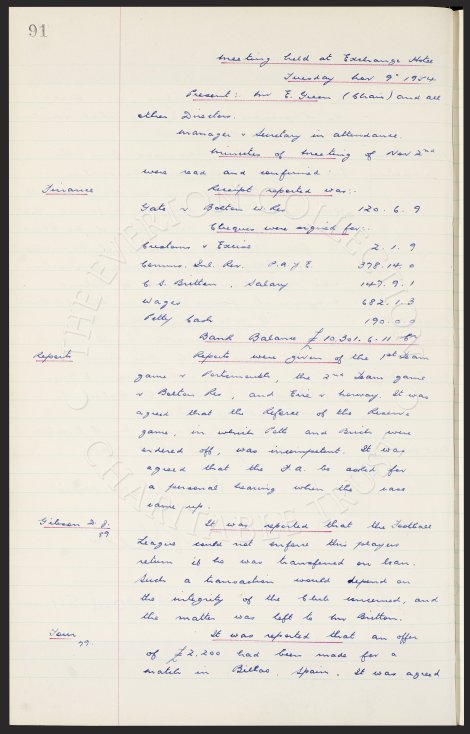 91
Meeting held at Exchange Hotel
Tuesday Nov 9th 1954
Present:- Mr E. Green (Chair) and all
other Directors.
Manager & Secretary in attendance.
Minutes of meeting of Nov 2nd
were read and confirmed:
Finance
Receipt reported was:-
Gate v Bolton W. Res 120. 6. 9
Cheques were signed for:-
Customs & Excise 2. 1. 9
Comms. Inl. Rev. P.A.Y.E. 378. 14. 0
C. S. Britton. Salary 147. 9. 1
Wages 682. 1. 3
Petty Cash 190. 0. 0
Bank Balance £10,301. 6. 11
Reports
Reports were given of the 1st Team
game v Portsmouth, the 2nd Team game
v Bolton Res, and Eire v Norway. It was
agreed that the Referee of the Reserve
game, in which Potts and Birch were
ordered off, was incompetent. It was
agreed that the F.A. be asked for
a personal hearing when the case
came up.
Gibson D. J.
89
It was reported that the Football
League could not enforce this players
return if he was transferred on loan.
Such a transaction would depend on
the integrity of the Club concerned, and
the matter was left to Mr Britton.
Tour
79.
It was reported that an offer
of £2,200 had been made for a
match in Bilbao, Spain. It was agreed
© THE EVERTON COLLECTION
CHARITABLE TRUST